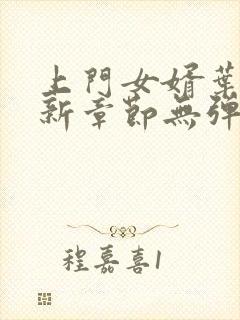 上門女婿葉
新章節無彈
程嘉喜1